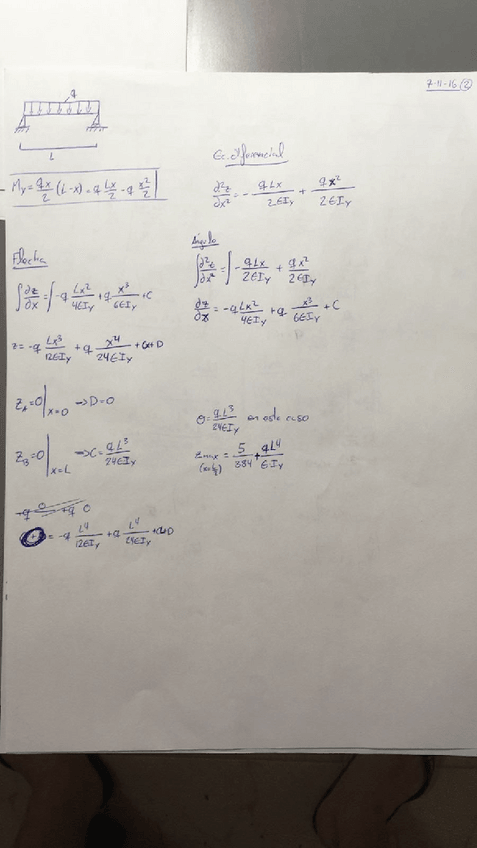 7-11-16 (2)
q
L
My = qx/2 (L-x) = q Lx/2 - q x²/2
Ec. Diferencial
∂²z/∂x² = - qLx/2EIy + qx²/2EIy
Ángulo
∫ ∂²z/∂x² = ∫ - qLx/2EIy + qx²/2EIy
∂z/∂x = -q Lx²/4EIy + q x³/6EIy + C
Flecha
∫ ∂z/∂x = ∫ -q Lx²/4EIy + q x³/6EIy + C
z = -q Lx³/12EIy + q x⁴/24EIy + Cx + D
zA = 0 | x=0 → D = 0
zB = 0 | x=L → C = qL³/24EIy
θ = qL³/24EIy en este caso
zmax = 5/384 + qL⁴/EIy
= -q L⁴/12EIy + q L⁴/24EIy + CL + D